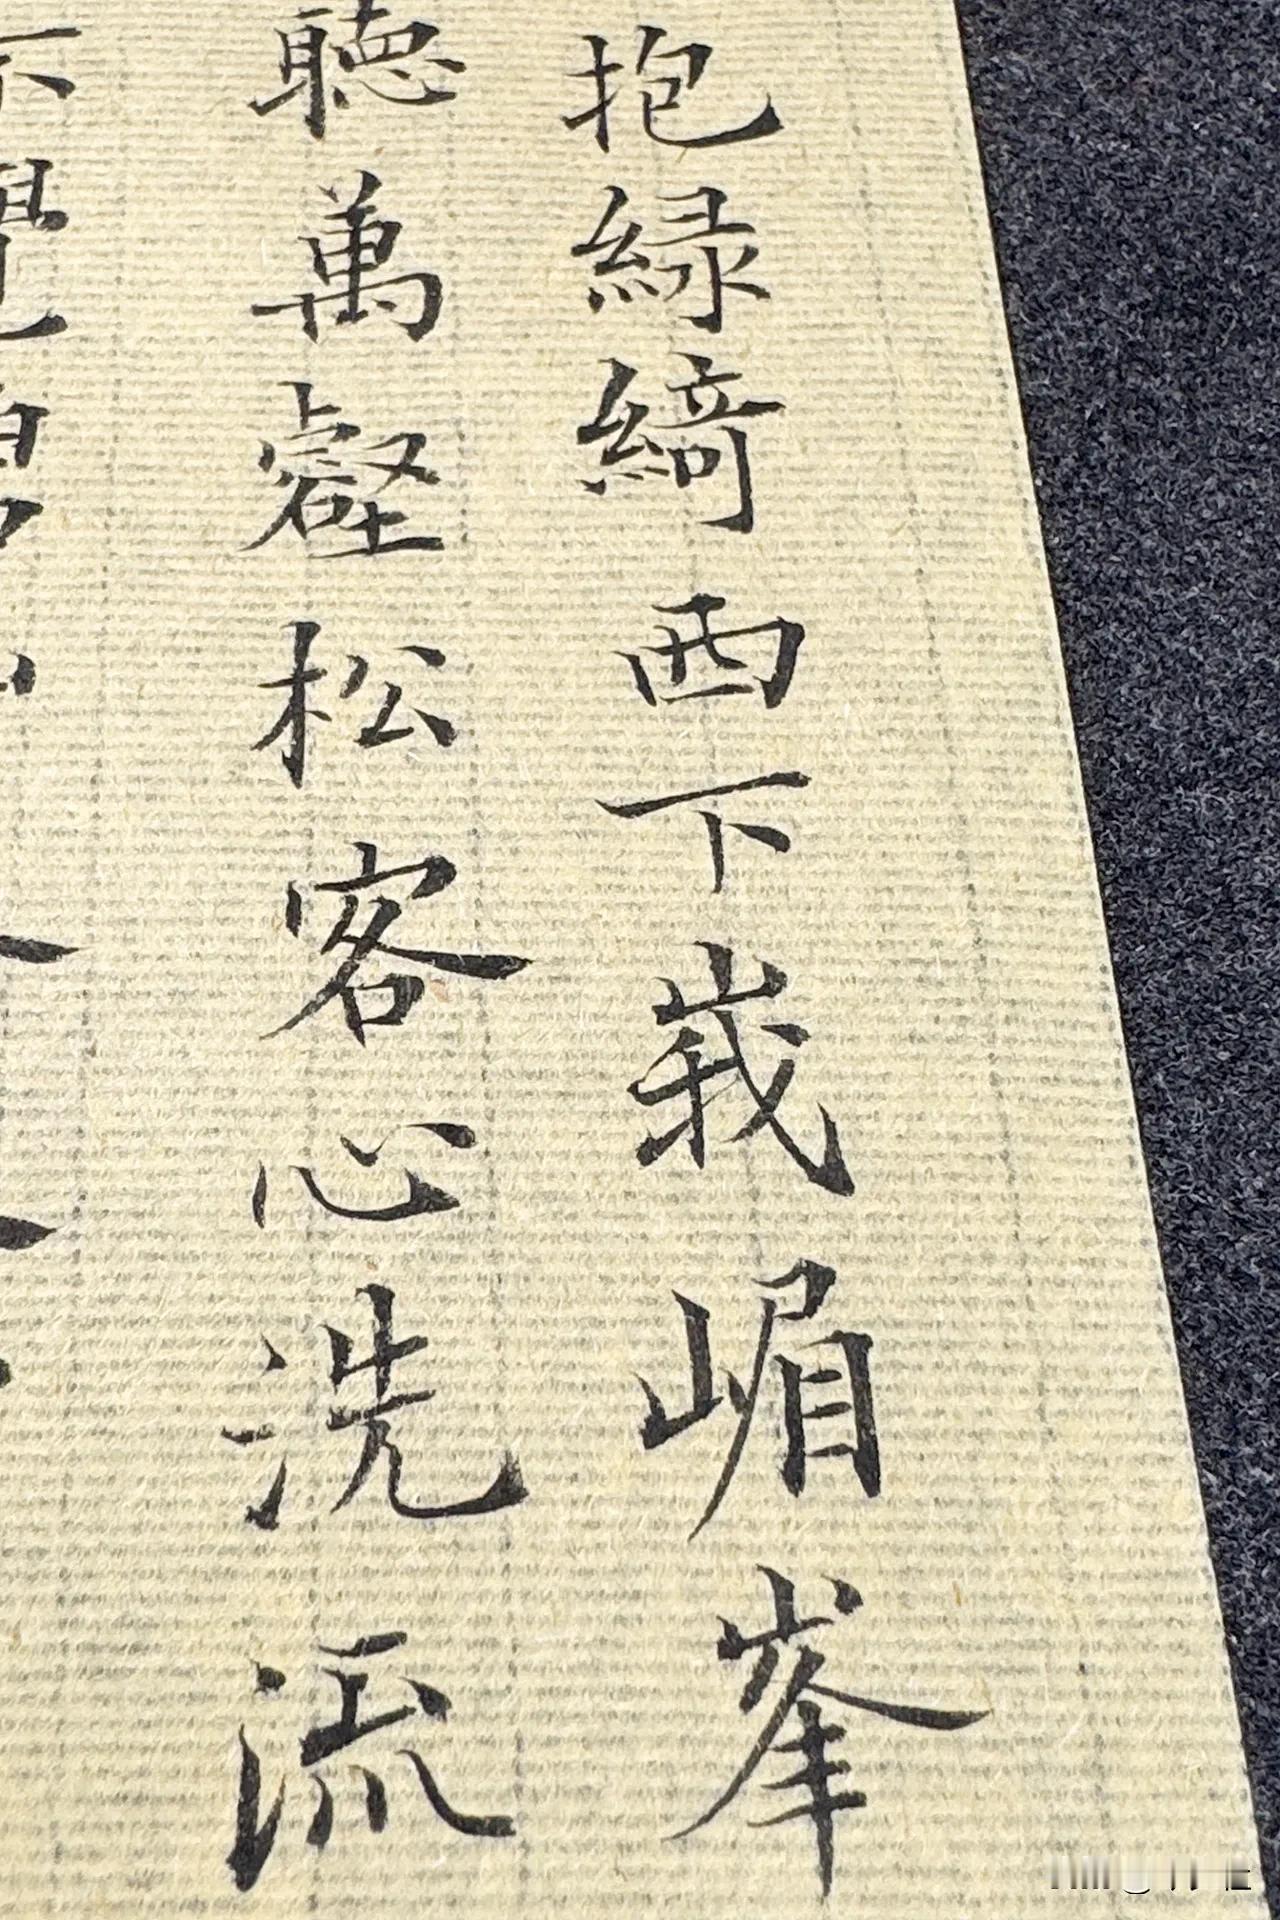 抱緑綺西下峩嵋峯
聽萬壑松客心洗流
不覺碧